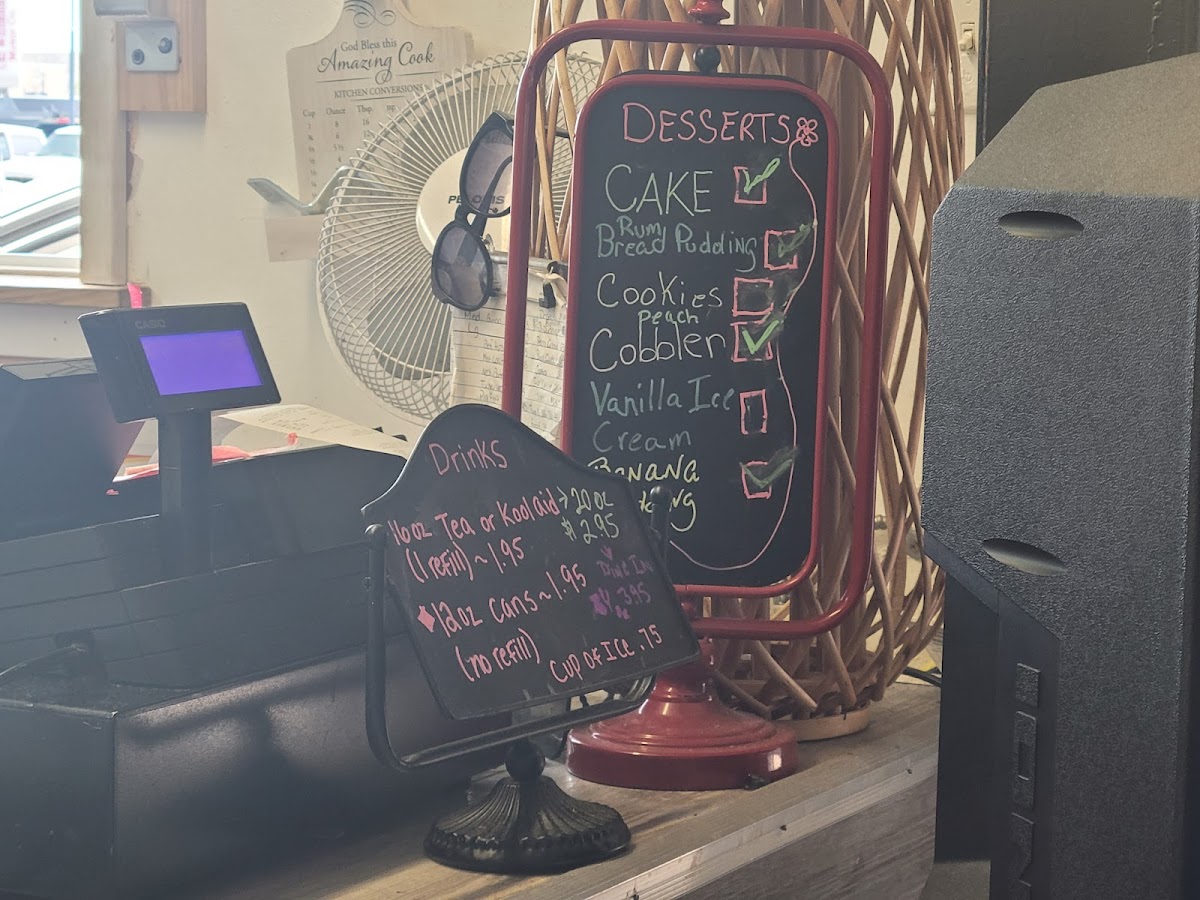 God Bless this
Amazing Cook
KITCHEN CONVERSIONS
Cup Ounce Tbsp
CASIO
DESSERTS
CAKE
Rum
Bread Pudding
Cookies
Peach
Cobbler
Vanilla Ice
Cream
BANANA
Drinks
16oz Tea or Koolaid → 20oz
(1 refill) ~ 1.95
$2.95
12oz cans ~ 1.95
(no refill)
Dine In
3.95
Cup of Ice .75